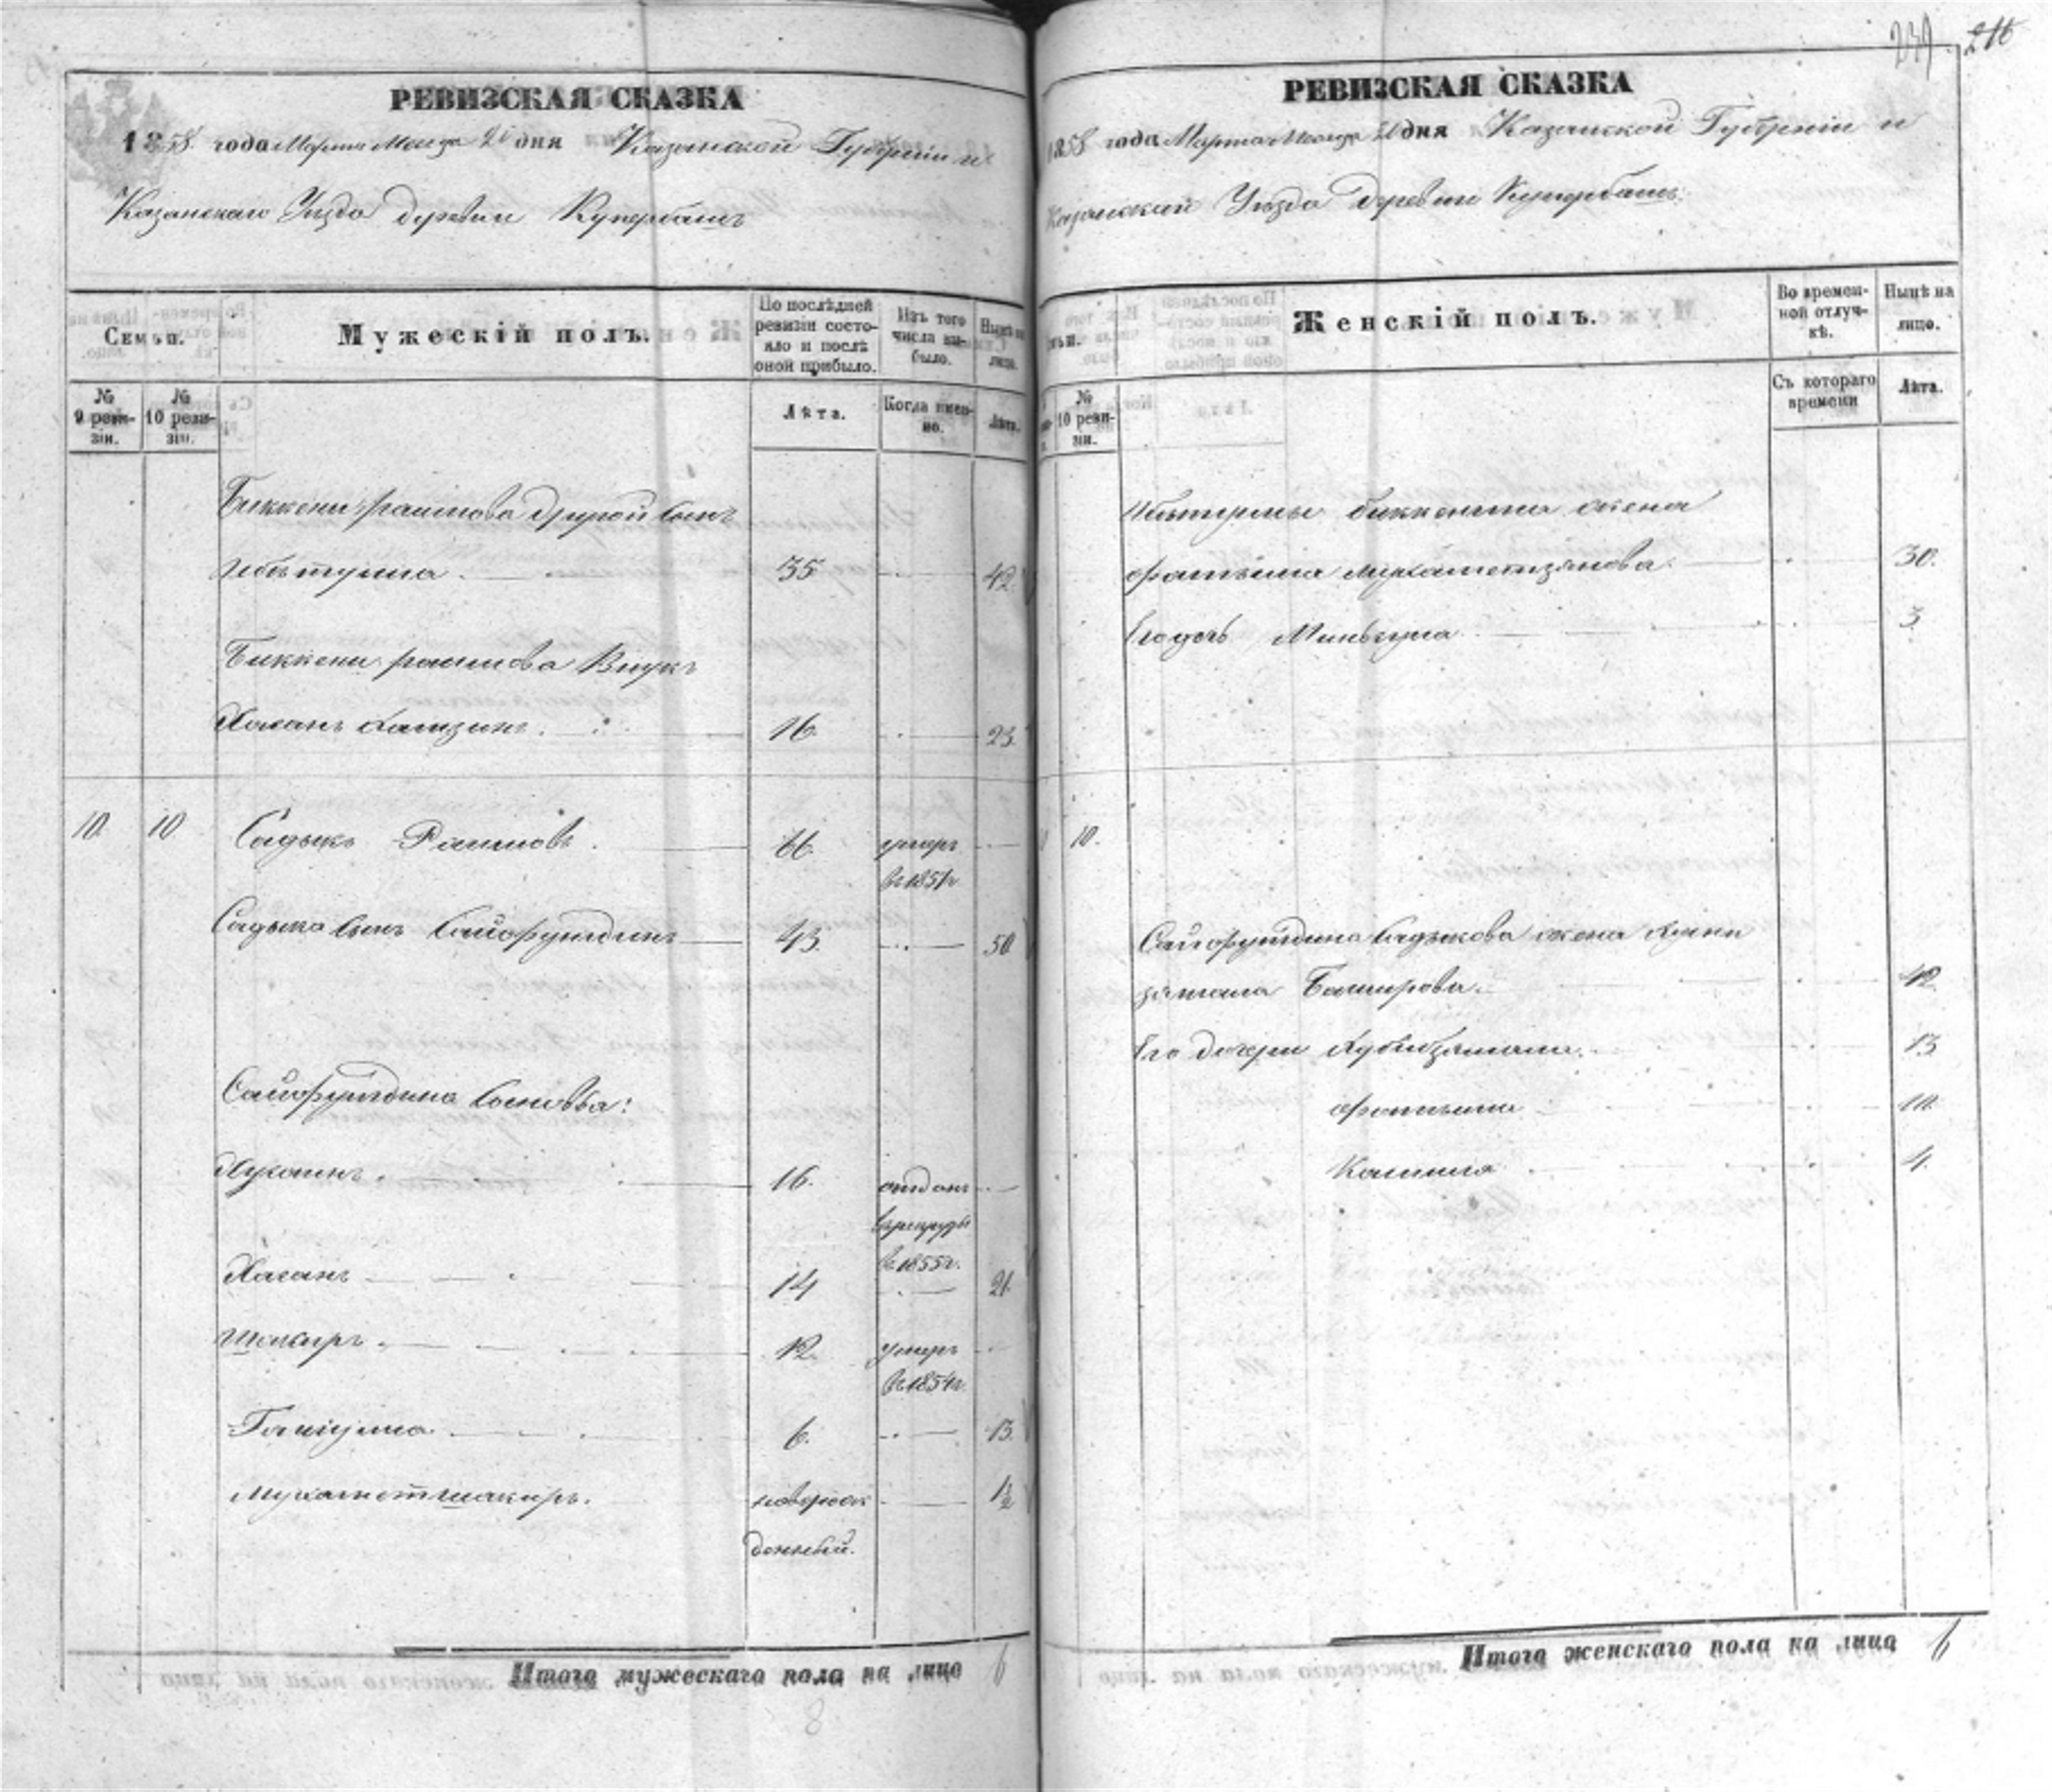 239 216
РЕВИЗСКАЯ СКАЗКА
1858 года Марта Месяца 20 дня Казанской Губерніи и
Казанскаго Уѣзда деревни Купербашъ
Семьи.
Мужескій полъ.
По послѣдней ревизіи состояло и послѣ оной прибыло.
Изъ того числа выбыло.
Нынѣ на лицо.
№ 9 ревизіи.
№ 10 ревизіи.
Лѣта.
Когда именно.
Лѣта.
Биккени Раимова другой сынъ
35 42
Биккени Раимова Внукъ
Хасанъ 16. 23.
10. 10 Садыкъ Раимовъ. 66. умеръ
въ 1851г
Садыка сынъ Сайфутдинъ 43. 50
Сайфутдина сыновья:
Хусаинъ. 16. отданъ
въ рекруты
въ 1855г.
Хасанъ 14 21.
Шакиръ. 12. умеръ
въ 1854г.
6. 13.
Мухаметшакиръ. новорож
денный. 1/2
Итого мужескаго пола на лицо 6
8
РЕВИЗСКАЯ СКАЗКА
1858 года Марта Месяца 20 дня Казанской Губерніи и
Казанскаго Уѣзда деревни Купербашъ.
Женскій полъ.
Во временной отлучкѣ.
Нынѣ на лицо.
№ 10 ревизіи.
Съ котораго времени
Лѣта.
Биккенина жена
Фатьима Мухаметзянова. 30.
Его дочь 3
10.
Сайфутдина Садыкова жена
Баширова. 42.
Его дочери 13
Фатьима 10.
4.
Итого женскаго пола на лицо 6